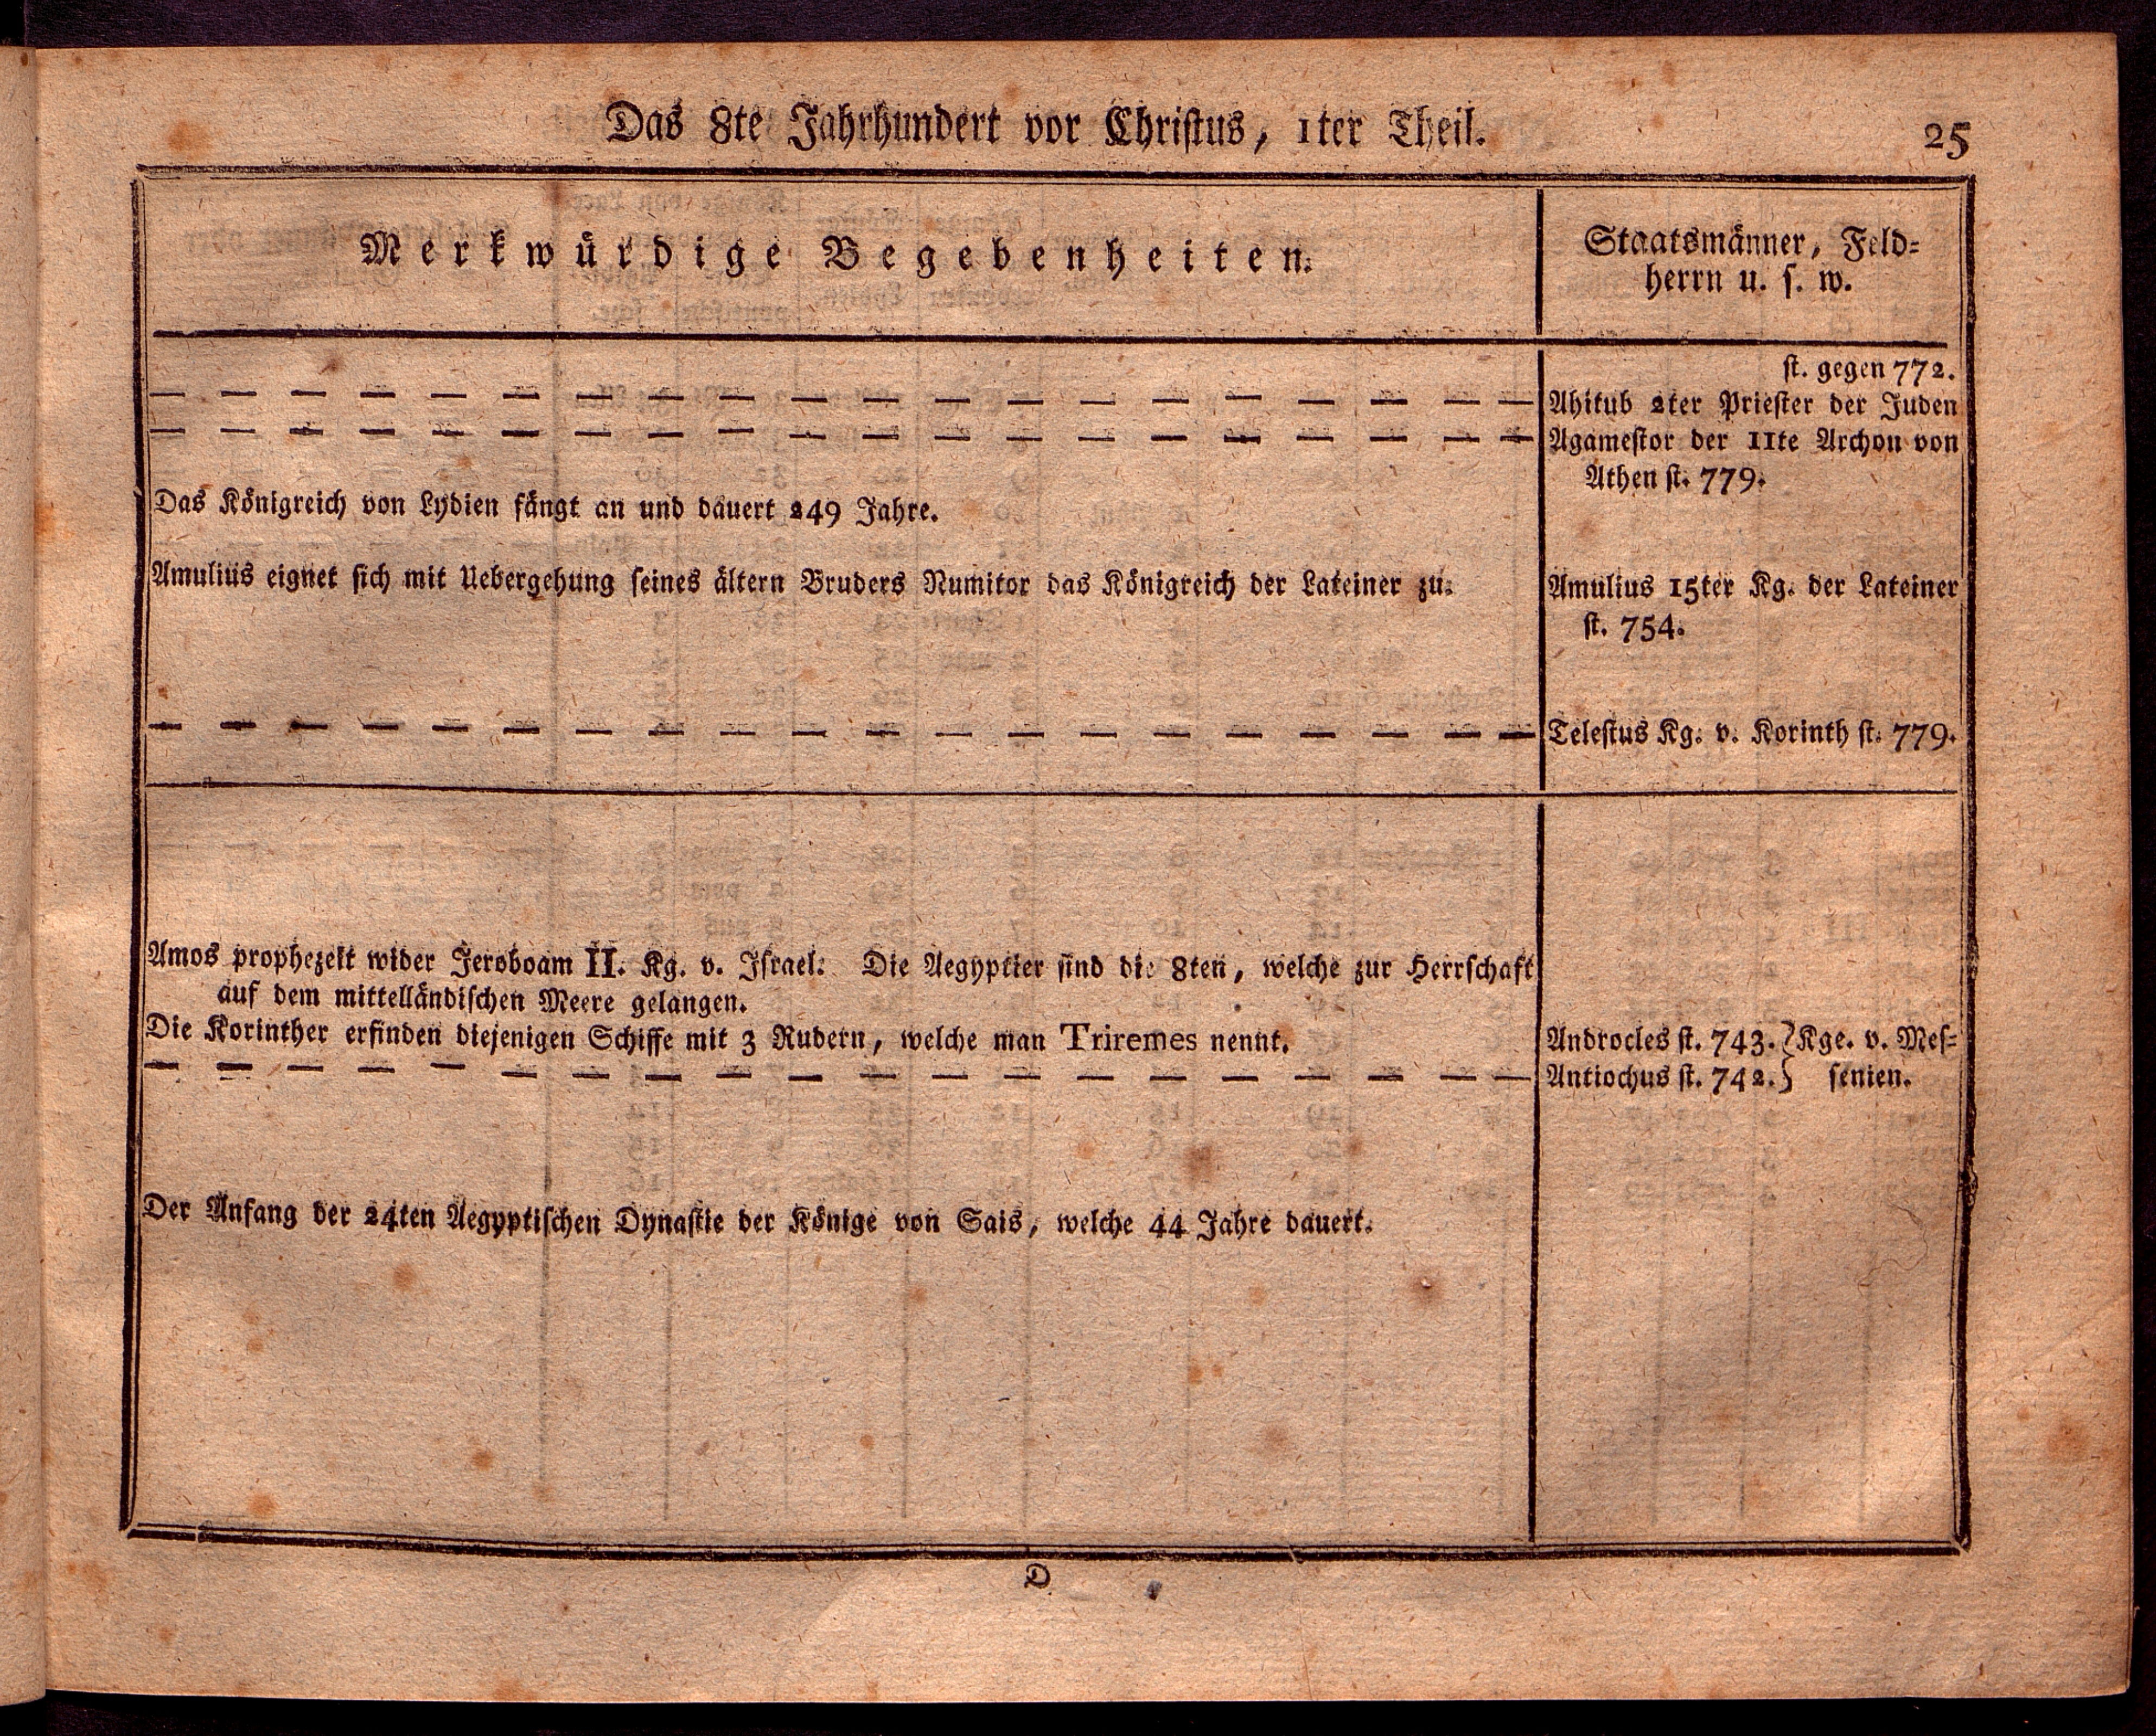 Das 8te Jahrhundert vor Christus, 1ter Theil.
25
Merkwürdige Begebenheiten.
Staatsmänner, Feld-
herrn u. s. w.
st. gegen 772.
— — — — — — — — — — — — — — — — — — — — Ahitub 2ter Priester der Juden
— — — — — — — — — — — — — — — — — — — — Agamestor der 11te Archon von
Athen st. 779.
Das Königreich von Lydien fängt an und dauert 249 Jahre.
Amulius eignet sich mit Uebergehung seines ältern Bruders Numitor das Königreich der Lateiner zu. Amulius 15ter Kg. der Lateiner
st. 754.
— — — — — — — — — — — — — — — — — — — — Telestus Kg. v. Korinth st. 779.
Amos prophezeit wider Jeroboam II. Kg. v. Israel. Die Aegyptier sind die 8ten, welche zur Herrschaft
auf dem mittelländischen Meere gelangen.
Die Korinther erfinden diejenigen Schiffe mit 3 Rudern, welche man Triremes nennt. Androcles st. 743. } Kge. v. Mes-
— — — — — — — — — — — — — — — — — — — — Antiochus st. 742. } senien.
Der Anfang der 24ten Aegyptischen Dynastie der Könige von Sais, welche 44 Jahre dauert.
D